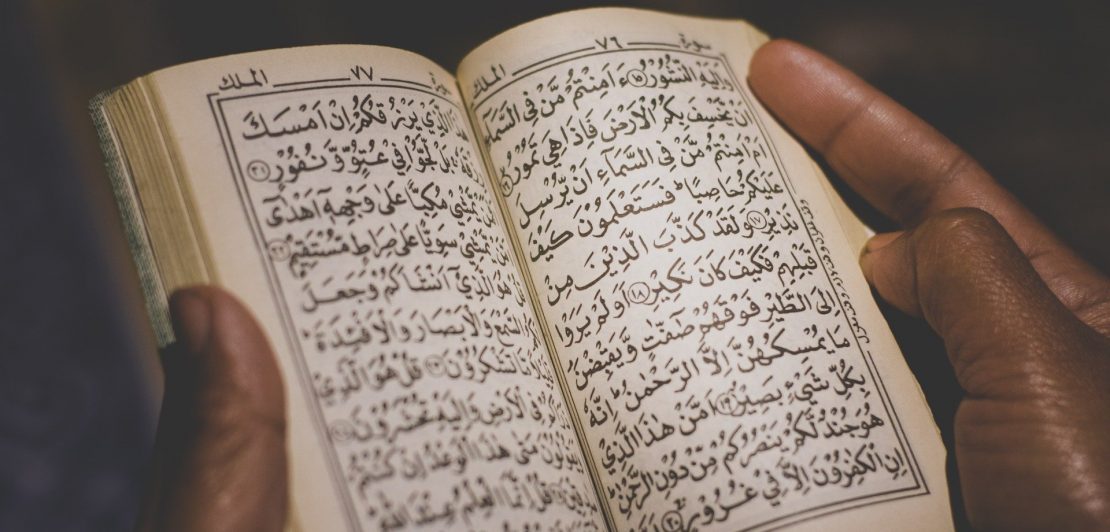 سورة ٧٦ الملك
وَاِلَيْهِ النُّشُوْرُ ۝١٥ ءَاَمِنْتُمْ مَّنْ فِى السَّمَآءِ
اَنْ يَّخْسِفَ بِكُمُ الْاَرْضَ فَاِذَا هِىَ تَمُوْرُ ۝١٦
اَمْ اَمِنْتُمْ مَّنْ فِى السَّمَآءِ اَنْ يُّرْسِلَ
عَلَيْكُمْ حَاصِبًا ؕ فَسَتَعْلَمُوْنَ كَيْفَ
نَذِيْرِ ۝١٧ وَلَقَدْ كَذَّبَ الَّذِيْنَ مِنْ
قَبْلِهِمْ فَكَيْفَ كَانَ نَكِيْرِ ۝١٨ اَوَلَمْ يَرَوْا
اِلَى الطَّيْرِ فَوْقَهُمْ صٰٓفّٰتٍ وَّيَقْبِضْنَ
مَا يُمْسِكُهُنَّ اِلَّا الرَّحْمٰنُ ؕ اِنَّهٗ
بِكُلِّ شَىْءٍ بَصِيْرٌ ۝١٩ اَمَّنْ هٰذَا الَّذِىْ
هُوَ جُنْدٌ لَّكُمْ يَنْصُرُكُمْ مِّنْ دُوْنِ الرَّحْمٰنِ ؕ
اِنِ الْكٰفِرُوْنَ اِلَّا فِىْ غُرُوْرٍ ۝٢٠
سورة ٧٧ الملك
الَّذِىْ يَرْزُقُكُمْ اِنْ اَمْسَكَ
رِزْقَهٗ بَلْ لَّجُّوْا فِىْ عُتُوٍّ وَّنُفُوْرٍ ۝٢١
يَّمْشِىْ مُكِبًّا عَلٰى وَجْهِهٖٓ اَهْدٰٓى
يَّمْشِىْ سَوِيًّا عَلٰى صِرَاطٍ مُّسْتَقِيْمٍ ۝٢٢
هُوَ الَّذِىْٓ اَنْشَاَكُمْ وَجَعَلَ
السَّمْعَ وَالْاَبْصَارَ وَالْاَفْئِدَةَ ؕ
مَّا تَشْكُرُوْنَ ۝٢٣ قُلْ هُوَ الَّذِىْ
فِى الْاَرْضِ وَاِلَيْهِ تُحْشَرُوْنَ ۝٢٤
يَقُوْلُوْنَ مَتٰى هٰذَا الْوَعْدُ اِنْ كُنْتُمْ
قُلْ اِنَّمَا الْعِلْمُ عِنْدَ اللّٰهِ